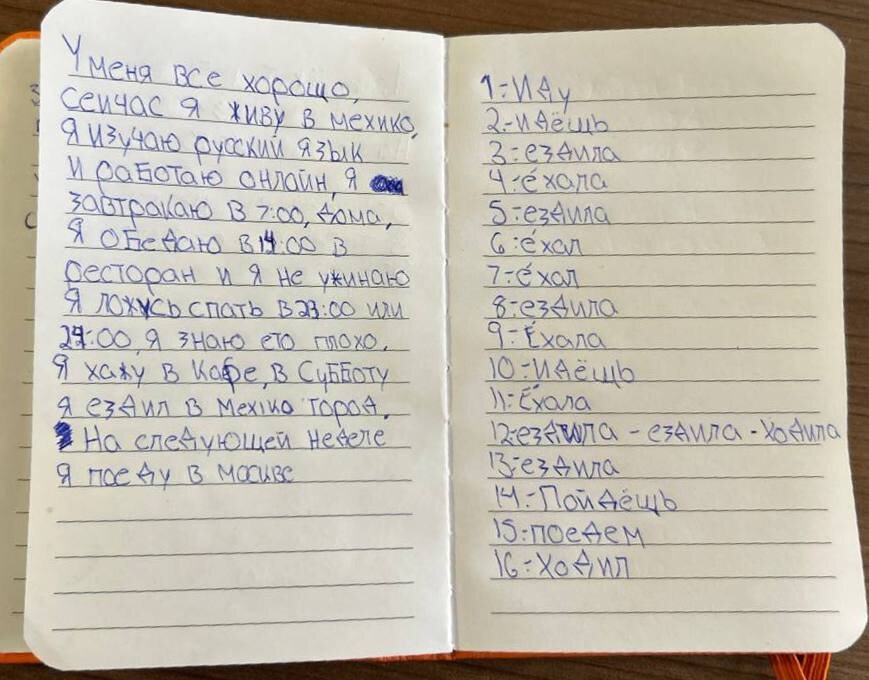 У меня все хорощо,
Сеичас я живу в мехико,
Я изучаю русский язык
и работаю онлайн, я
завтракаю в 7:00, дома,
Я обедаю в 14:00 в
ресторан и я не ужинаю
Я ложусь спать в 23:00 или
24:00, Я знаю ето плохо.
Я хажу в Кафе, в Субботу
я ездил в Мехiко город.
На следующей неделе
я поеду в москве
1-: Иду
2.- идёщь
3-: ездила
4-: éхала
5-: ездила
6-: éхал
7-: éхал
8-: ездила
9-: Éхала
10-: Идёщь
11-: Éхала
12-: ездила - ездила - Ходила
13-: ездила
14-: Пойдёщь
15-: поедем
16-: Ходил